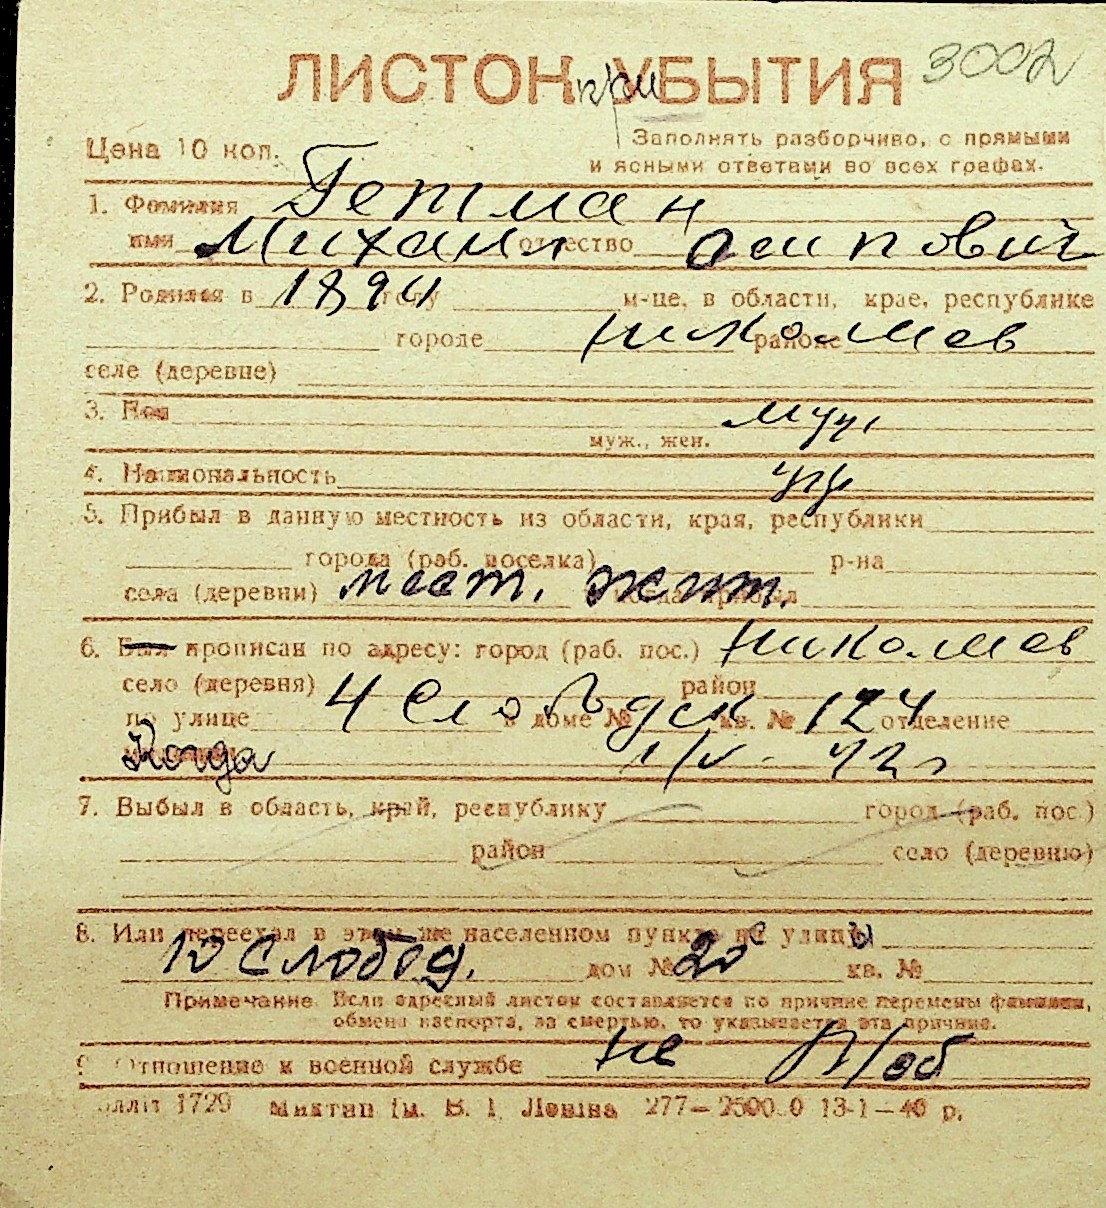 ЛИСТОК УБЫТИЯ 3002
при
Цена 10 коп. Заполнять разборчиво, с прямыми
и ясными ответами во всех графах.
1. Фамилия Гетман
имя Михаил отчество Осипович
2. Родился в 1894 году м-це, в области, крае, республике
городе Николаев районе
селе (деревне)
3. Пол муж.
муж., жен.
4. Национальность укр
5. Прибыл в данную местность из области, края, республики
города (раб. поселка) р-на
села (деревни) мест. жит. когда прибыл
6. Был прописан по адресу: город (раб. пос.) Николаев
село (деревня) район
по улице 4 Слободск в доме № кв. № 124 отделение
Когда 1/V - 42 г
7. Выбыл в область, край, республику город (раб. пос.)
район село (деревню)
8. Или переехал в этом же населенном пункте с улицы
10 Слобод. дом № 20 кв. №
Примечание. Если адресный листок составляется по причине перемены фамилии,
обмена паспорта, за смертью, то указывается эта причина.
9. Отношение к военной службе не в/об
1729 Миктип ім. В. І. Леніна 277— 13-1—40 р.